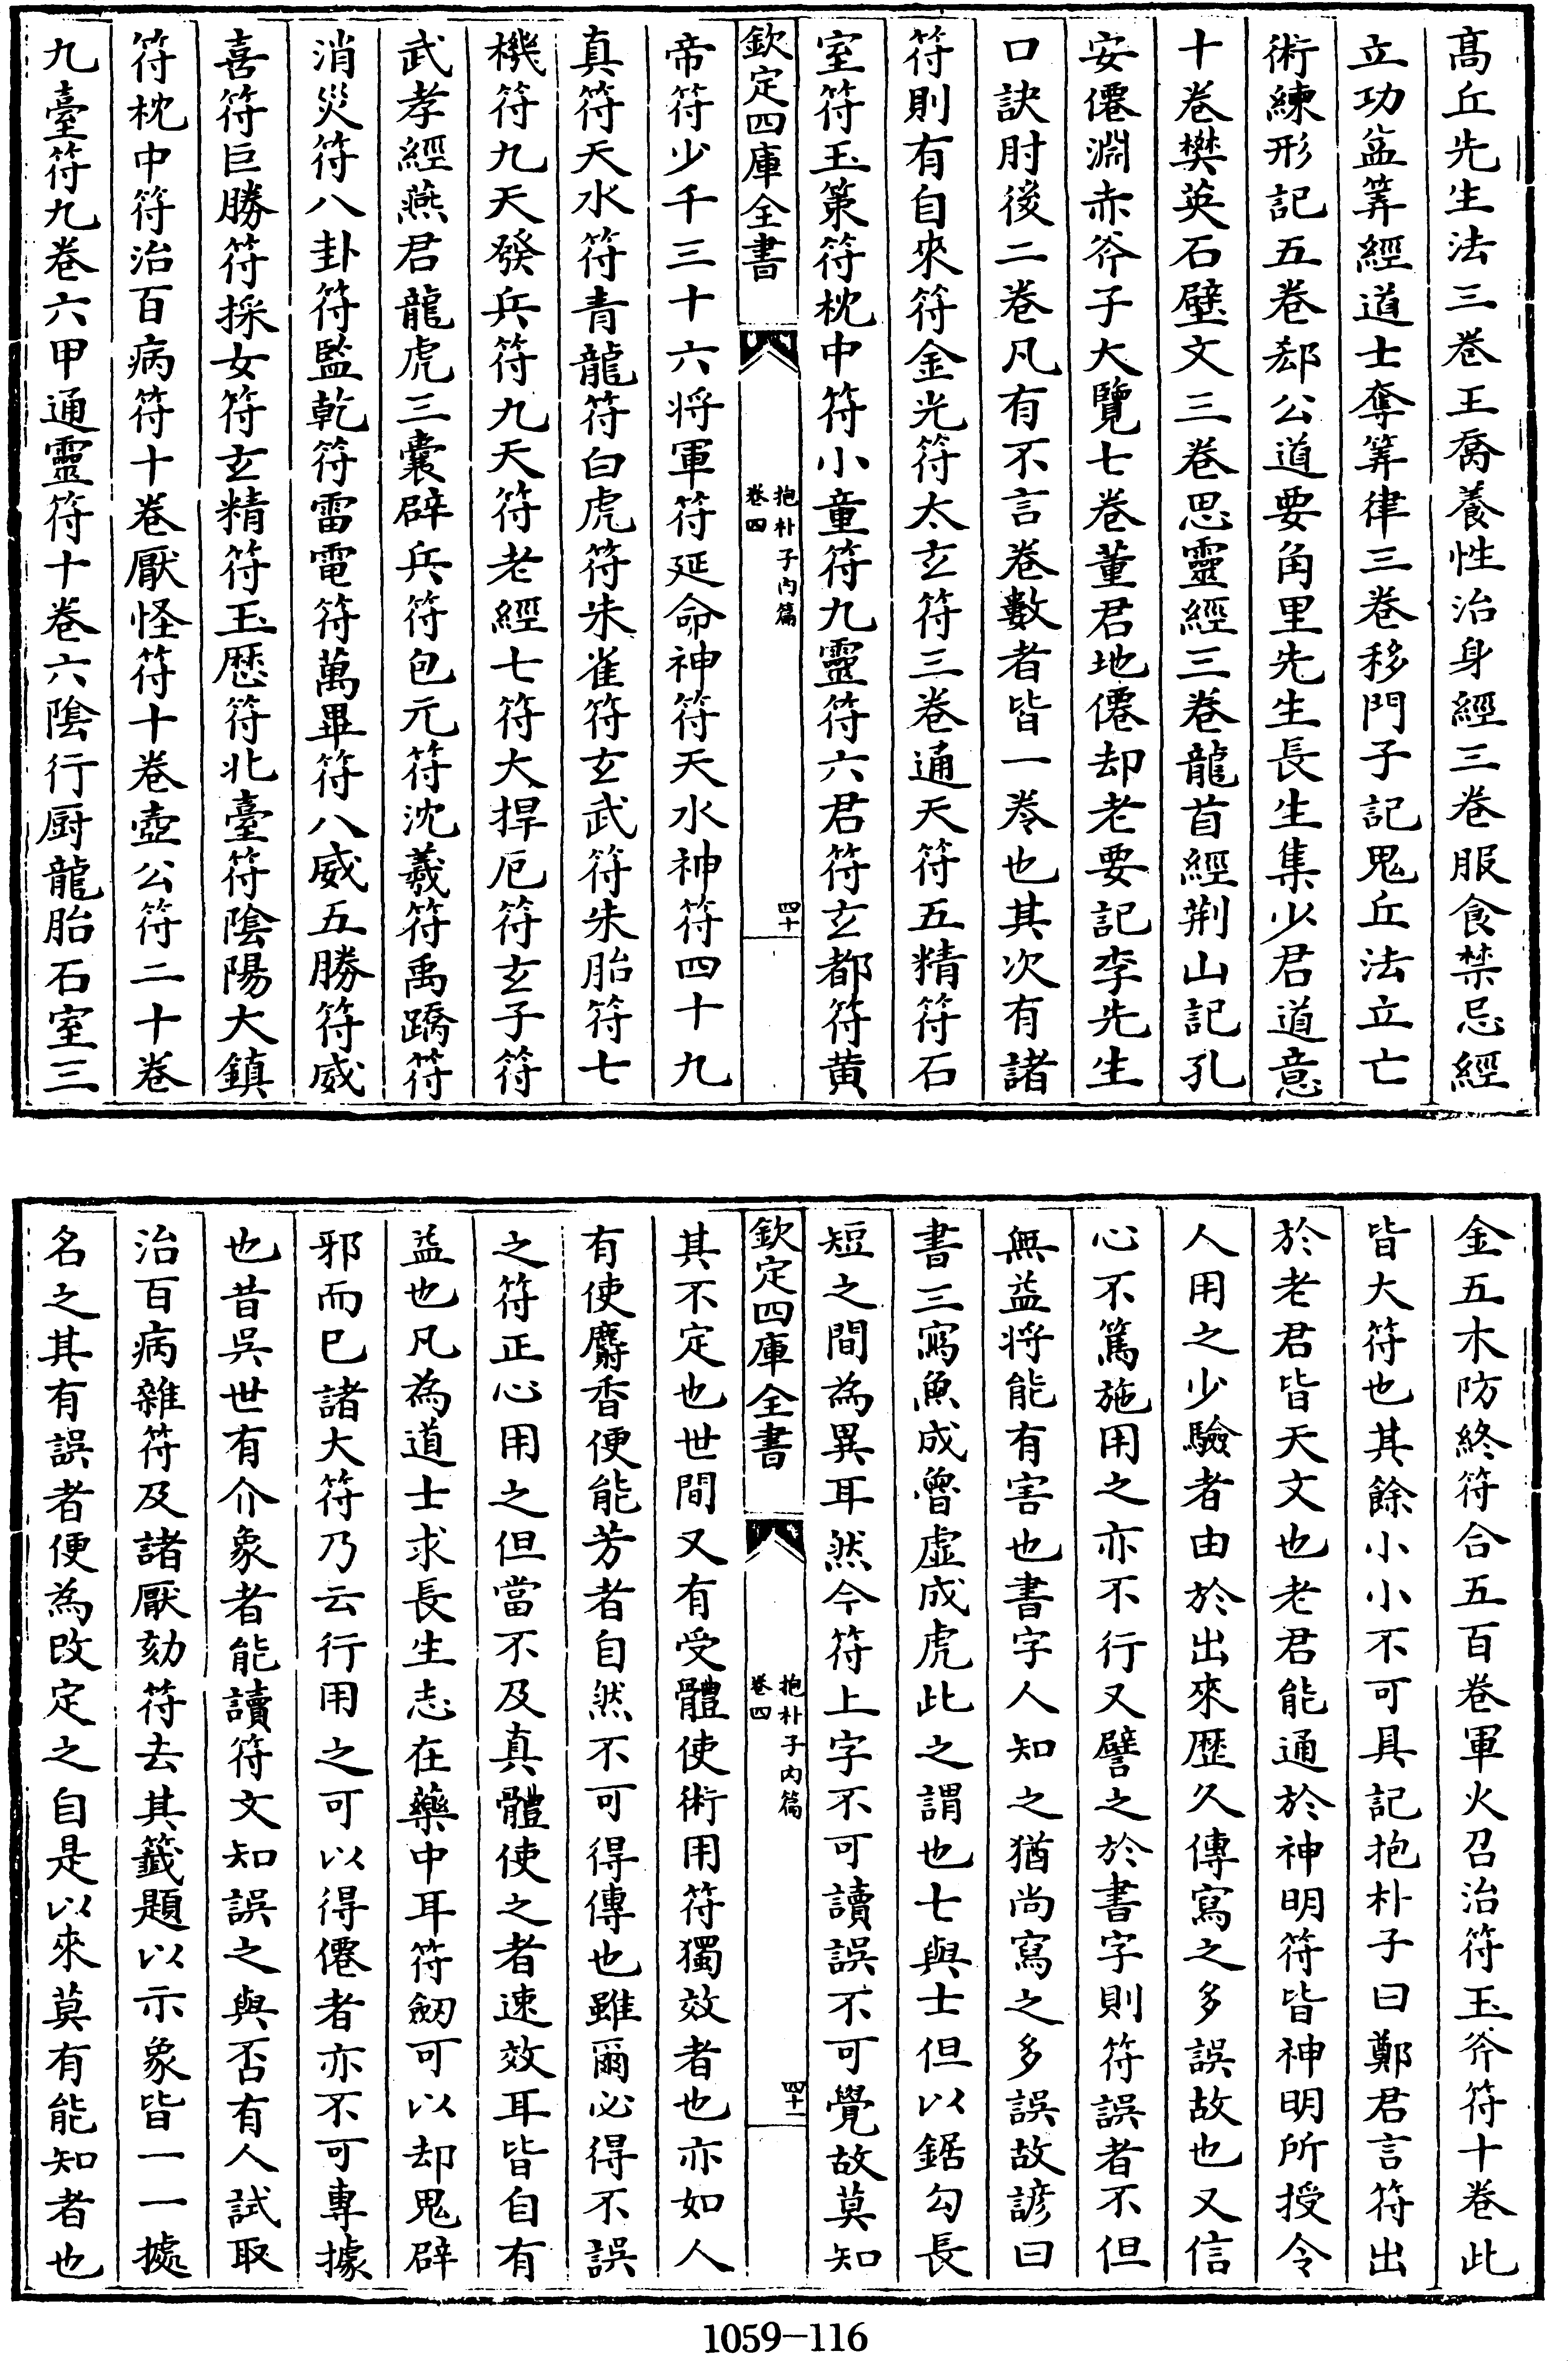 高丘先生法三卷王喬養性治身經三卷服食禁忌經
立功益筭經道士奪筭律三卷移門子記鬼丘法立亡
術練形記五卷郄公道要角里先生長生集少君道意
十卷樊英石壁文三卷思靈經三卷龍首經荆山記孔
安僊淵赤斧子大覽七卷董君地僊却老要記李先生
口訣肘後二卷凡有不言卷數者皆一卷也其次有諸
符則有自來符金光符太玄符三卷通天符五精符石
室符玉策符枕中符小童符九靈符六君符玄都符黄
欽定四庫全書
抱朴子内篇
卷四
四十
帝符少千三十六将軍符延命神符天水神符四十九
真符天水符青龍符白虎符朱雀符玄武符朱胎符七
機符九天發兵符九天符老經七符大捍厄符玄子符
武孝經燕君龍虎三囊辟兵符包元符沈羲符禹蹻符
消災符八卦符監乾符雷電符萬畢符八威五勝符威
喜符巨勝符採女符玄精符玉歴符北臺符陰陽大鎮
符枕中符治百病符十卷厭怪符十卷壺公符二十卷
九臺符九卷六甲通靈符十卷六陰行厨龍胎石室三
金五木防終符合五百卷軍火召治符玉斧符十卷此
皆大符也其餘小小不可具記抱朴子曰鄭君言符出
於老君皆天文也老君能通於神明符皆神明所授令
人用之少驗者由於出來歴久傳寫之多誤故也又信
心不篤施用之亦不行又譬之於書字則符誤者不但
無益将能有害也書字人知之猶尚寫之多誤故諺曰
書三寫魚成魯虚成虎此之謂也七與士但以鋸勾長
短之間為異耳然今符上字不可讀誤不可覺故莫知
欽定四庫全書
抱朴子内篇
卷四
四十一
其不定也世間又有受體使術用符獨效者也亦如人
有使麝香便能芳者自然不可得傳也雖爾必得不誤
之符正心用之但當不及真體使之者速效耳皆自有
益也凡為道士求長生志在藥中耳符劒可以却鬼辟
邪而巳諸大符乃云行用之可以得僊者亦不可專據
也昔吳世有介象者能讀符文知誤之與否有人試取
治百病雜符及諸厭劾符去其籤題以示象皆一一據
名之其有誤者便為改定之自是以來莫有能知者也
1059—116